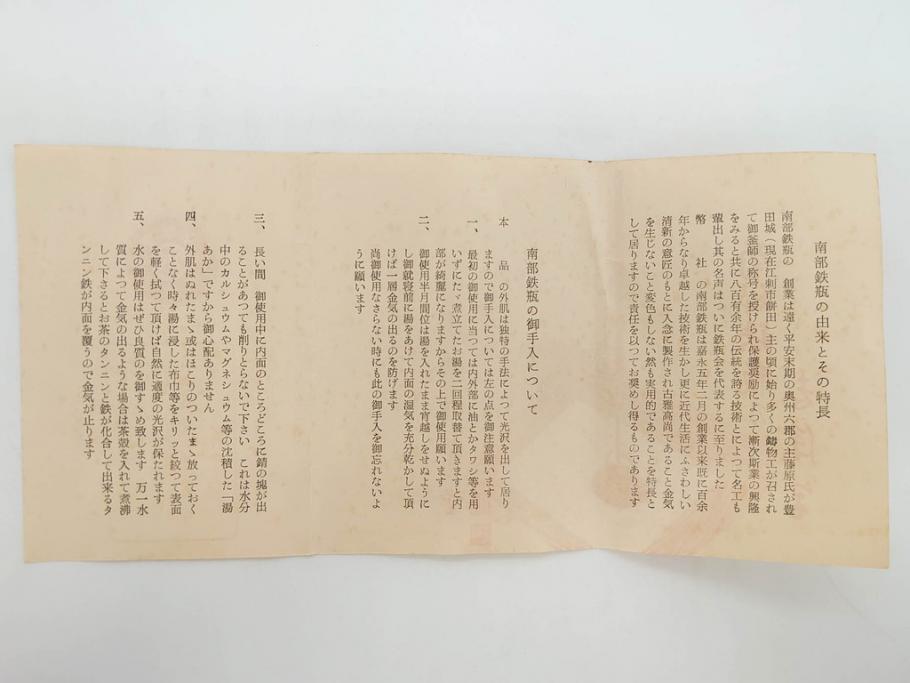 南部鉄瓶の由来とその特長
南部鉄瓶の　創業は遠く平安末期の奥州六郡の主藤原氏が豊
田城（現在江刺市餅田）主の頃に始り多くの鋳物工が召され
て御釜師の称号を授けられ保護奨励によつて漸次斯業の興隆
をみると共に八百有余年の伝統を誇る技術とによつて名工も
輩出し其の名声はついに鉄瓶会を代表するに至りました
幣　　社　の南部鉄瓶は嘉永五年二月の創業以来既に百余
年からなり卓越した技術を生かし更に近代生活にふさわしい
清新の意匠のもとに入念に製作され古雅高尚であること金気
を生じないこと変色もしない然も実用的であることを特長と
して居りますので責任を以つてお奨めし得るものであります
南部鉄瓶の御手入について
本　　品　の外肌は独特の手法によつて光沢を出して居り
ますので御手入については左の点を御注意願います
一、最初の御使用に当つては内外部に油とかタワシ等を用
いずにたゞ煮立てたお湯を二回程取替て頂きますと内
部が綺麗になりますからその上で御使用願います
二、御使用半月間位は湯を入れたまま宵越しをせぬように
し御就寝前に湯をあけて内面の湿気を充分乾かして頂
けば一層金気の出るのを防げます
尚御使用なさらない時にも此の御手入を御忘れないよ
うに願います
三、長い間　御使用中に内面のところどころに錆の塊が出
ることがあつても削りとらないで下さい　これは水分
中のカルシュウムやマグネシュウム等の沈積した「湯
あか」ですから御心配ありません
四、外肌はぬれたまゝ或はほこりのついたまゝ放っておく
ことなく時々湯に浸した布巾等をキリッと絞つて表面
を軽く拭つて頂けば自然に適度の光沢が保たれます
五、水の御使用はぜひ良質のを御すゝめ致します　万一水
質によつて金気の出るような場合は茶殻を入れて煮沸
して下さるとお茶のタンニンと鉄が化合して出来るタ
ンニン鉄が内面を覆うので金気が止ります